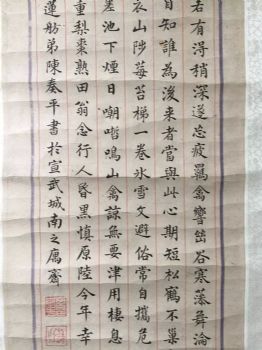 若有得稍深遂忘疲羈禽響幽谷寒藻舞淪
自知誰為後來者當與此心期短松鶴不巢
衣山陟莓苔梯一卷氷雪文避俗常自攜危
池下煙日嘲哳鳴山禽諒無要津用棲息
重梨棗熟田翁念行人昏黑慎原陸今年幸
蓮舫弟陳平書於宣武城南之寓齋